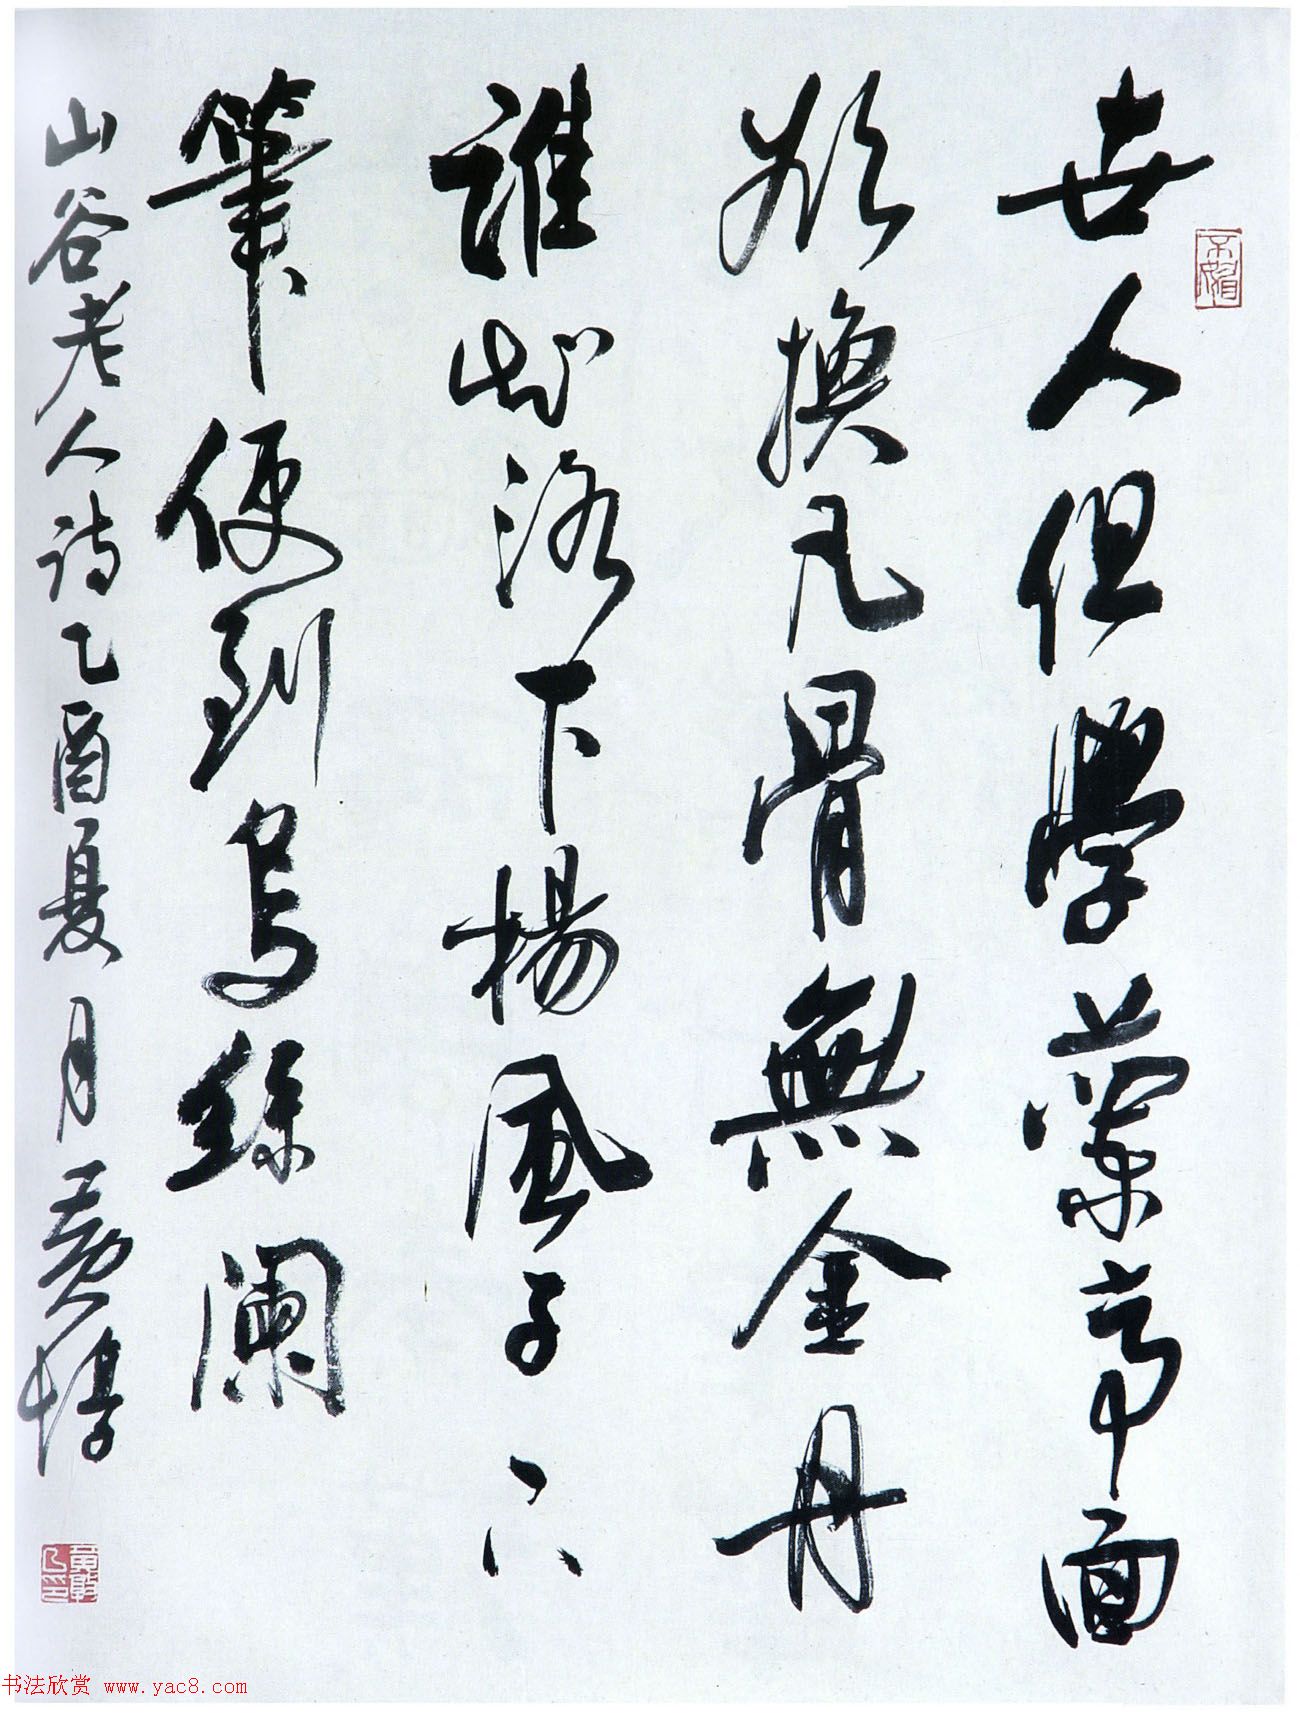 世人但學蘭亭面
欲換凡骨無金丹
誰知洛下楊風子下
筆便到烏絲闌
山谷老人詩乙酉夏月黃惇
不媚
书法欣赏 www.yac8.com